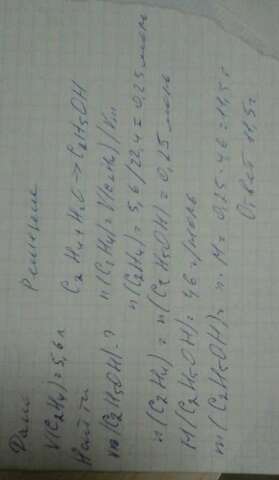 Дано
V(C2H4)=5,6л
Найти
m(C2H5OH)-?
Решение
C2H4+H2O→C2H5OH
n(C2H4)=V(C2H4)/Vm
n(C2H4)=5,6/22,4=0,25моль
n(C2H4)=n(C2H5OH)=0,25 моль
M(C2H5OH)=46 г/моль
m(C2H5OH)=n·M=0,25·46=11,5г
Ответ 11,5г